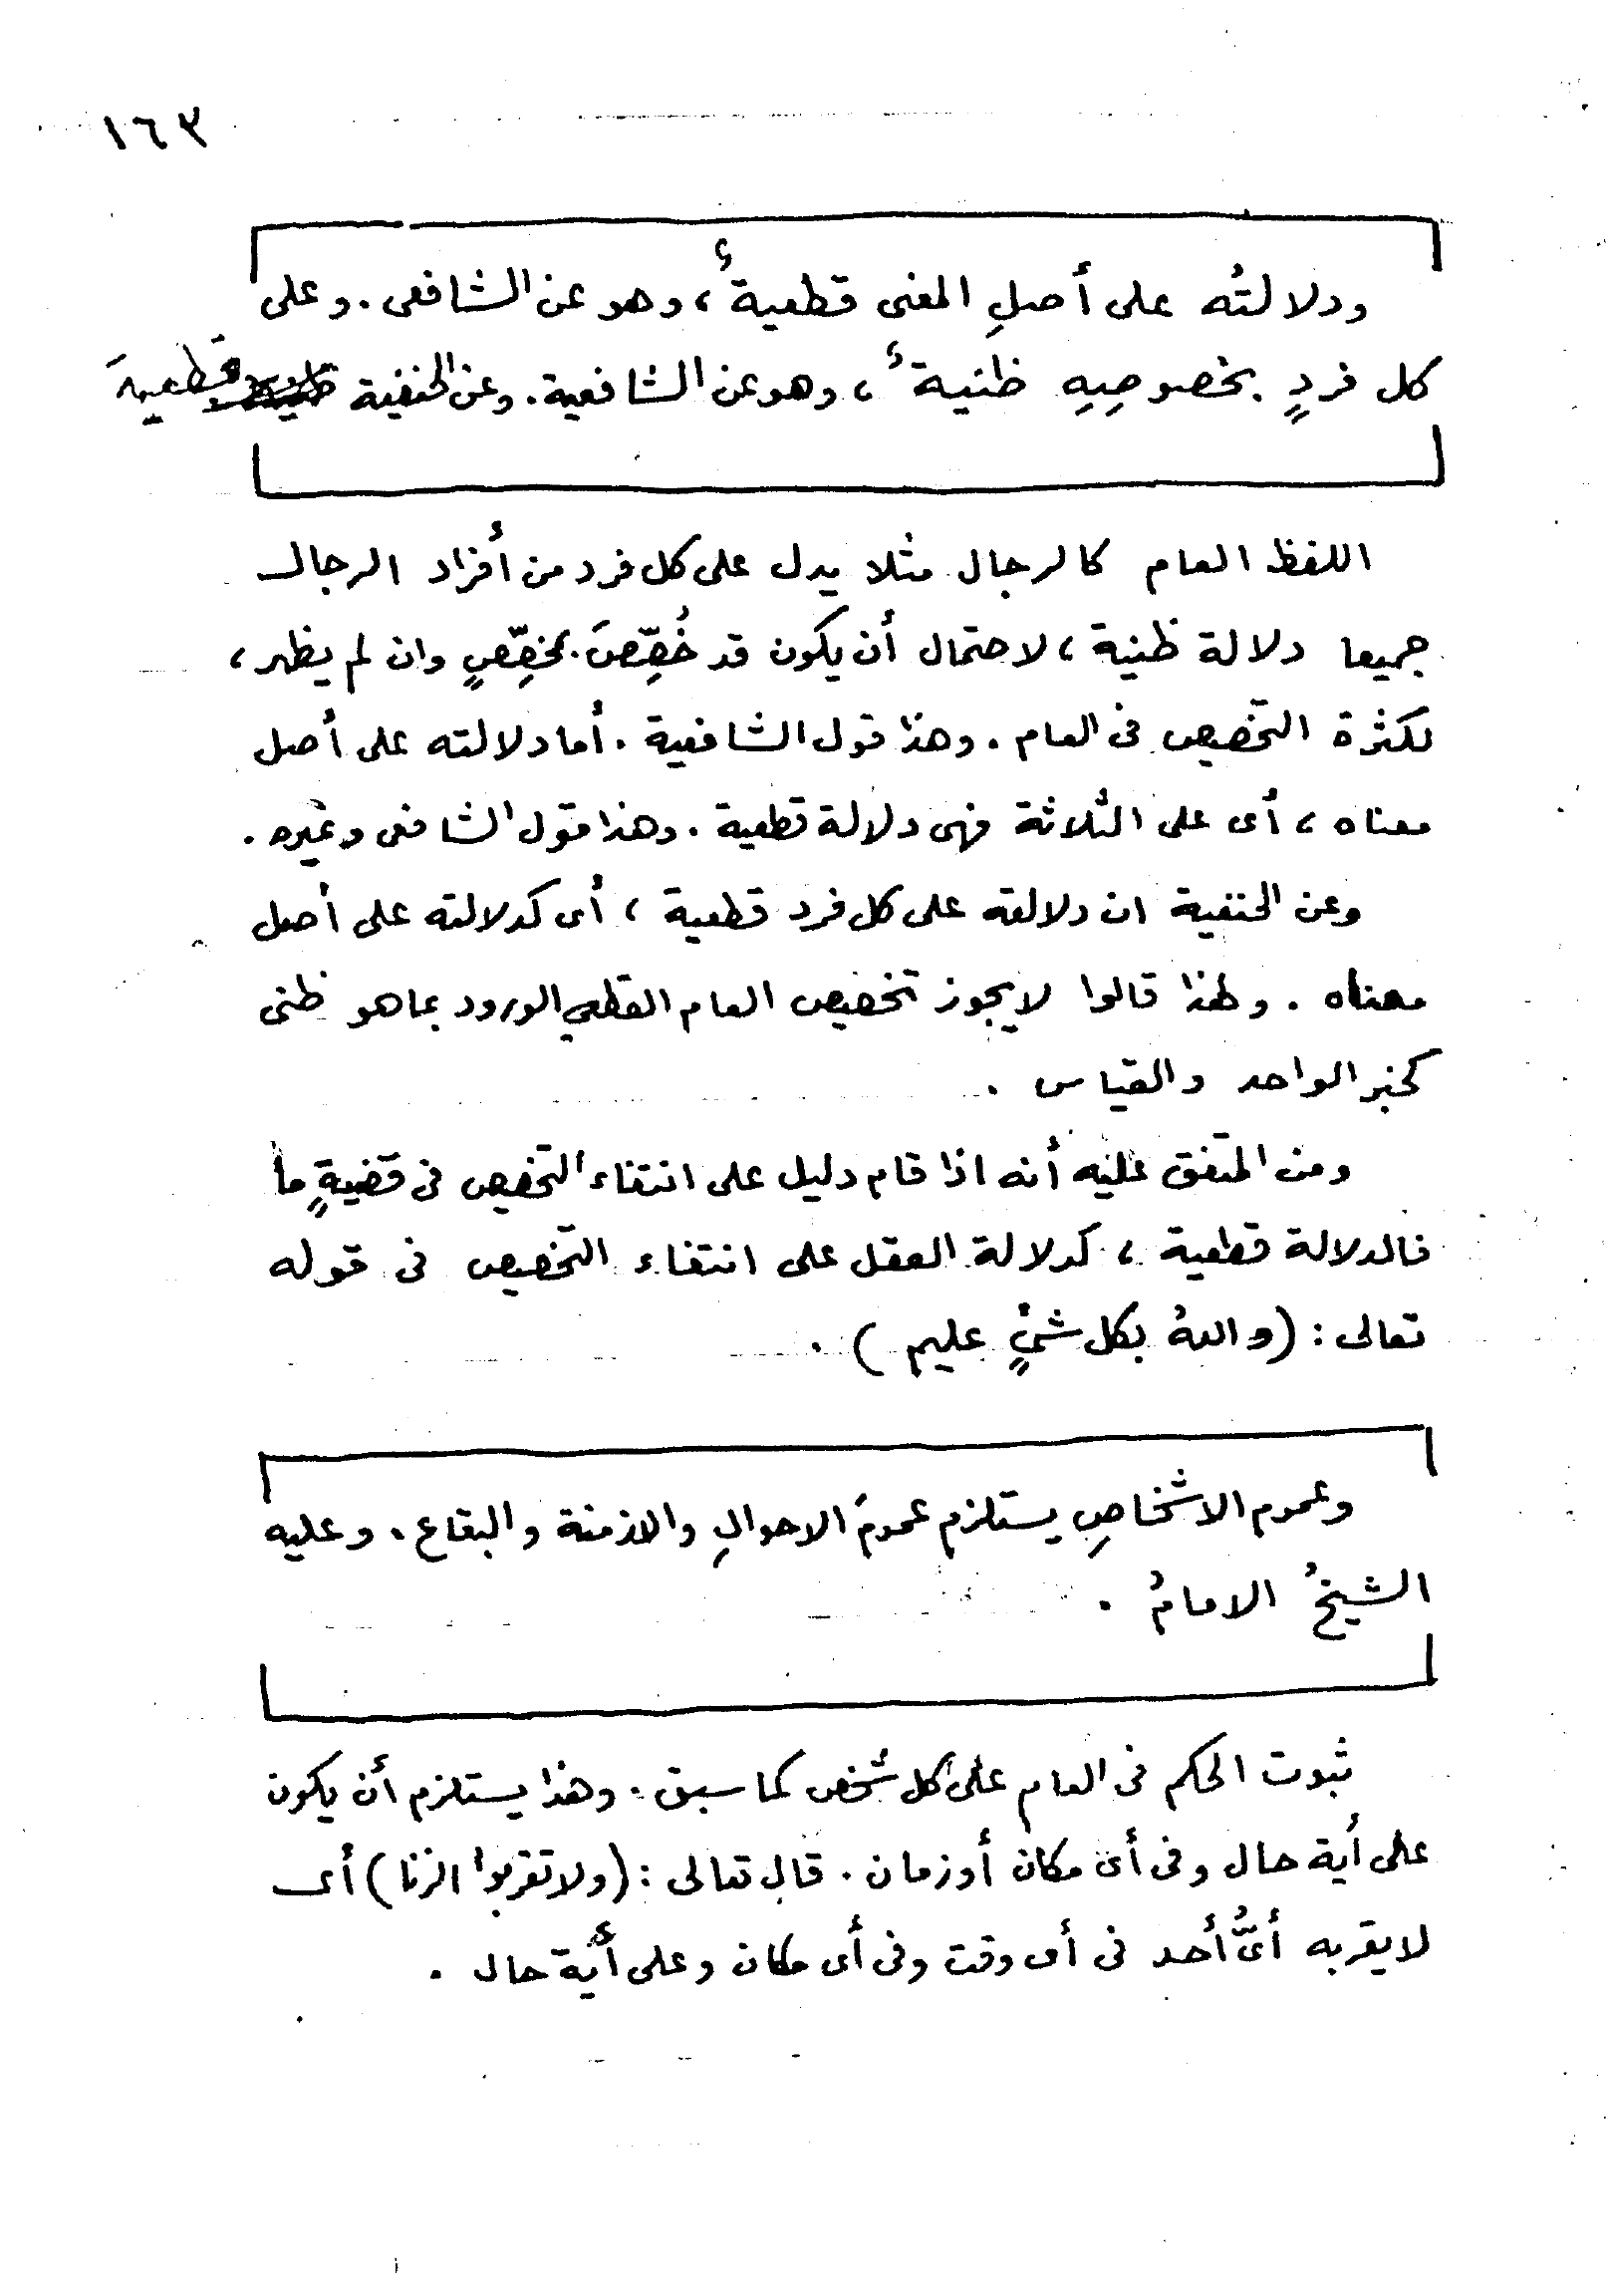 ١٦٣
ودلالتُه على أصلِ المعنى قطعيةٌ، وهو عن الشافعى. وعلى
كل فردٍ بخصوصِهِ ظنيةٌ، وهو عن الشافعية. وعن الحنفية قطعيةَ
اللفظ العام كالرجال مثلا يدل على كل فرد من أفراد الرجال
جميعا دلالة ظنية، لاحتمال أن يكون قد خُصِّصَ بمخصِّصٍ وان لم يظهر،
لكثرة التخصيص فى العام. وهذا قول الشافعية. أما دلالته على أصل
معناه، أى على الثلاثة فهى دلالة قطعية. وهذا قول الشافعى وغيره.
وعن الحنفية ان دلالته على كل فرد قطعية، أى كدلالته على أصل
معناه. ولهذا قالوا لا يجوز تخصيص العام القطعي الورود بما هو ظنى
كخبر الواحد والقياس.
ومن المتفق عليه أنه اذا قام دليل على انتفاء التخصيص فى قضيةٍ ما
فالدلالة قطعية، كدلالة العقل على انتفاء التخصيص فى قوله
تعالى: (واللهُ بكل شئٍ عليم).
وعموم الاشخاصِ يستلزم عمومَ الاحوالِ والازمنة والبقاع. وعليه
الشيخُ الامامُ.
ثبوت الحكم فى العام على كل شخص كما سبق. وهذا يستلزم أن يكون
على أية حال وفى أى مكان أو زمان. قال تعالى: (ولا تقربوا الزنا) أى
لا يقربه أىُّ أحد فى أى وقت وفى أى مكان وعلى أية حال.